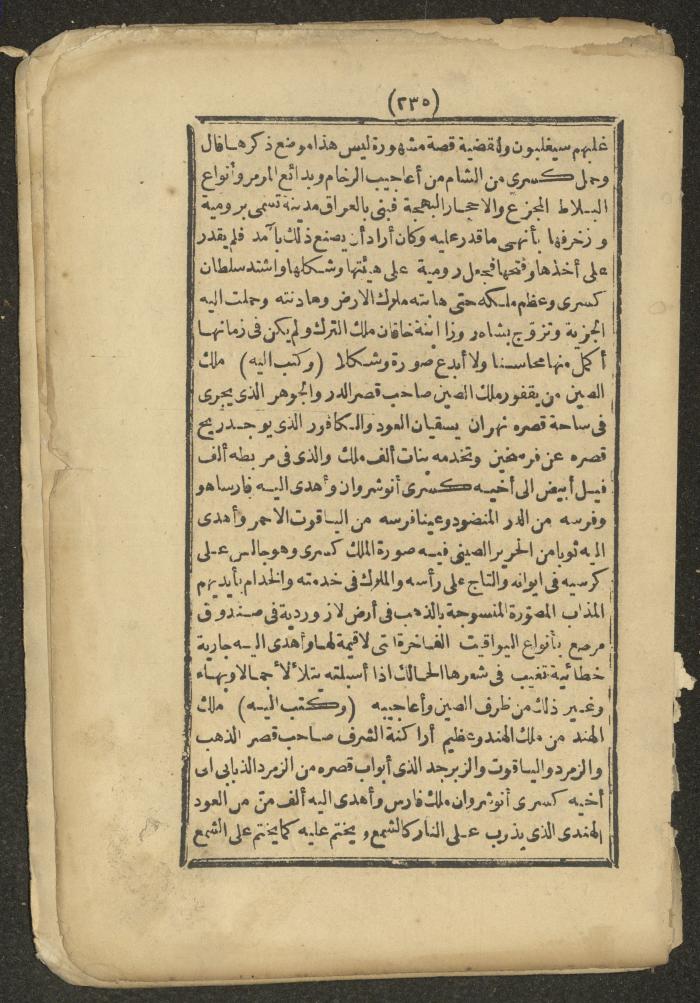 (٢٣٥)
غلبهم سيغلبون ولقضية قصة مشهورة ليس هذا موضع ذكرها قال
وحمل كسرى من الشام من أعاجيب الرخام وبدائع المرمر وأنواع
البلاط المجزع والاحجار البهجة فبنى بالعراق مدينة تسمى برومية
وزخرفها بأنهى ما قدر عليه وكان أراد أن يصنع ذلك بآمد فلم يقدر
على أخذها وفتحها فجعل رومية على هيئتها وشكلها واشتد سلطان
كسرى وعظم ملكه حتى هابته ملوك الارض وهادنته وحملت اليه
الجزية وتزوج بشاهر وزا ابنة خاقان ملك الترك ولم يكن فى زمانها
أكمل منها محاسنا ولا أبدع صورة وشكلا (وكتب اليه) ملك
الصين من يقفور ملك الصين صاحب قصر الدر والجوهر الذى يجرى
فى ساحة قصره نهران يسقيان العود والكافور الذى يوجد ريح
قصره عن فرسخين وتخدمه بنات ألف ملك والذى فى مربطه ألف
فيل أبيض الى أخيه كسرى أنوشروان وأهدى اليه فارسا هو
وفرسه من الدر المنضود وعينا فرسه من الياقوت الاحمر وأهدى
اليه ثوبا من الحرير الصينى فيه صورة الملك كسرى وهو جالس على
كرسيه فى ايوانه والتاج على رأسه والملوك فى خدمته والخدام بأيديهم
المذاب المصورة المنسوجة بالذهب فى أرض لازوردية فى صندوق
مرصع بأنواع اليواقيت الفاخرة التى لاقيمة لها وأهدى اليه جارية
خطائية تغيب فى شعرها الحالك اذا أسبلته يتلألأ جمالا وبهاء
وغير ذلك من ظرف الصين وأعاجيبه (وكتب اليه) ملك
الهند من ملك الهند وعظيم أراكنة الشرف صاحب قصر الذهب
والزمرد والياقوت والزبرجد الذى أبواب قصره من الزمرد الذبابى الى
أخيه كسرى أنوشروان ملك فارس وأهدى اليه ألف من من العود
الهندى الذى يذرب على النار كالشمع ويختم عليه كما يختم على الشمع